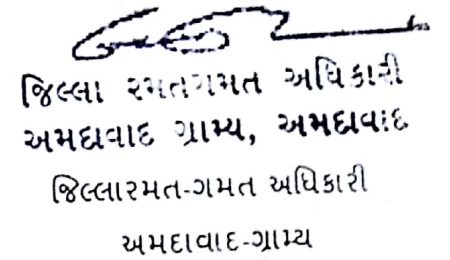 જિલ્લા રમતગમત અધિકારી
અમદાવાદ ગ્રામ્ય, અમદાવાદ
જિલ્લારમત-ગમત અધિકારી
અમદાવાદ-ગ્રામ્ય